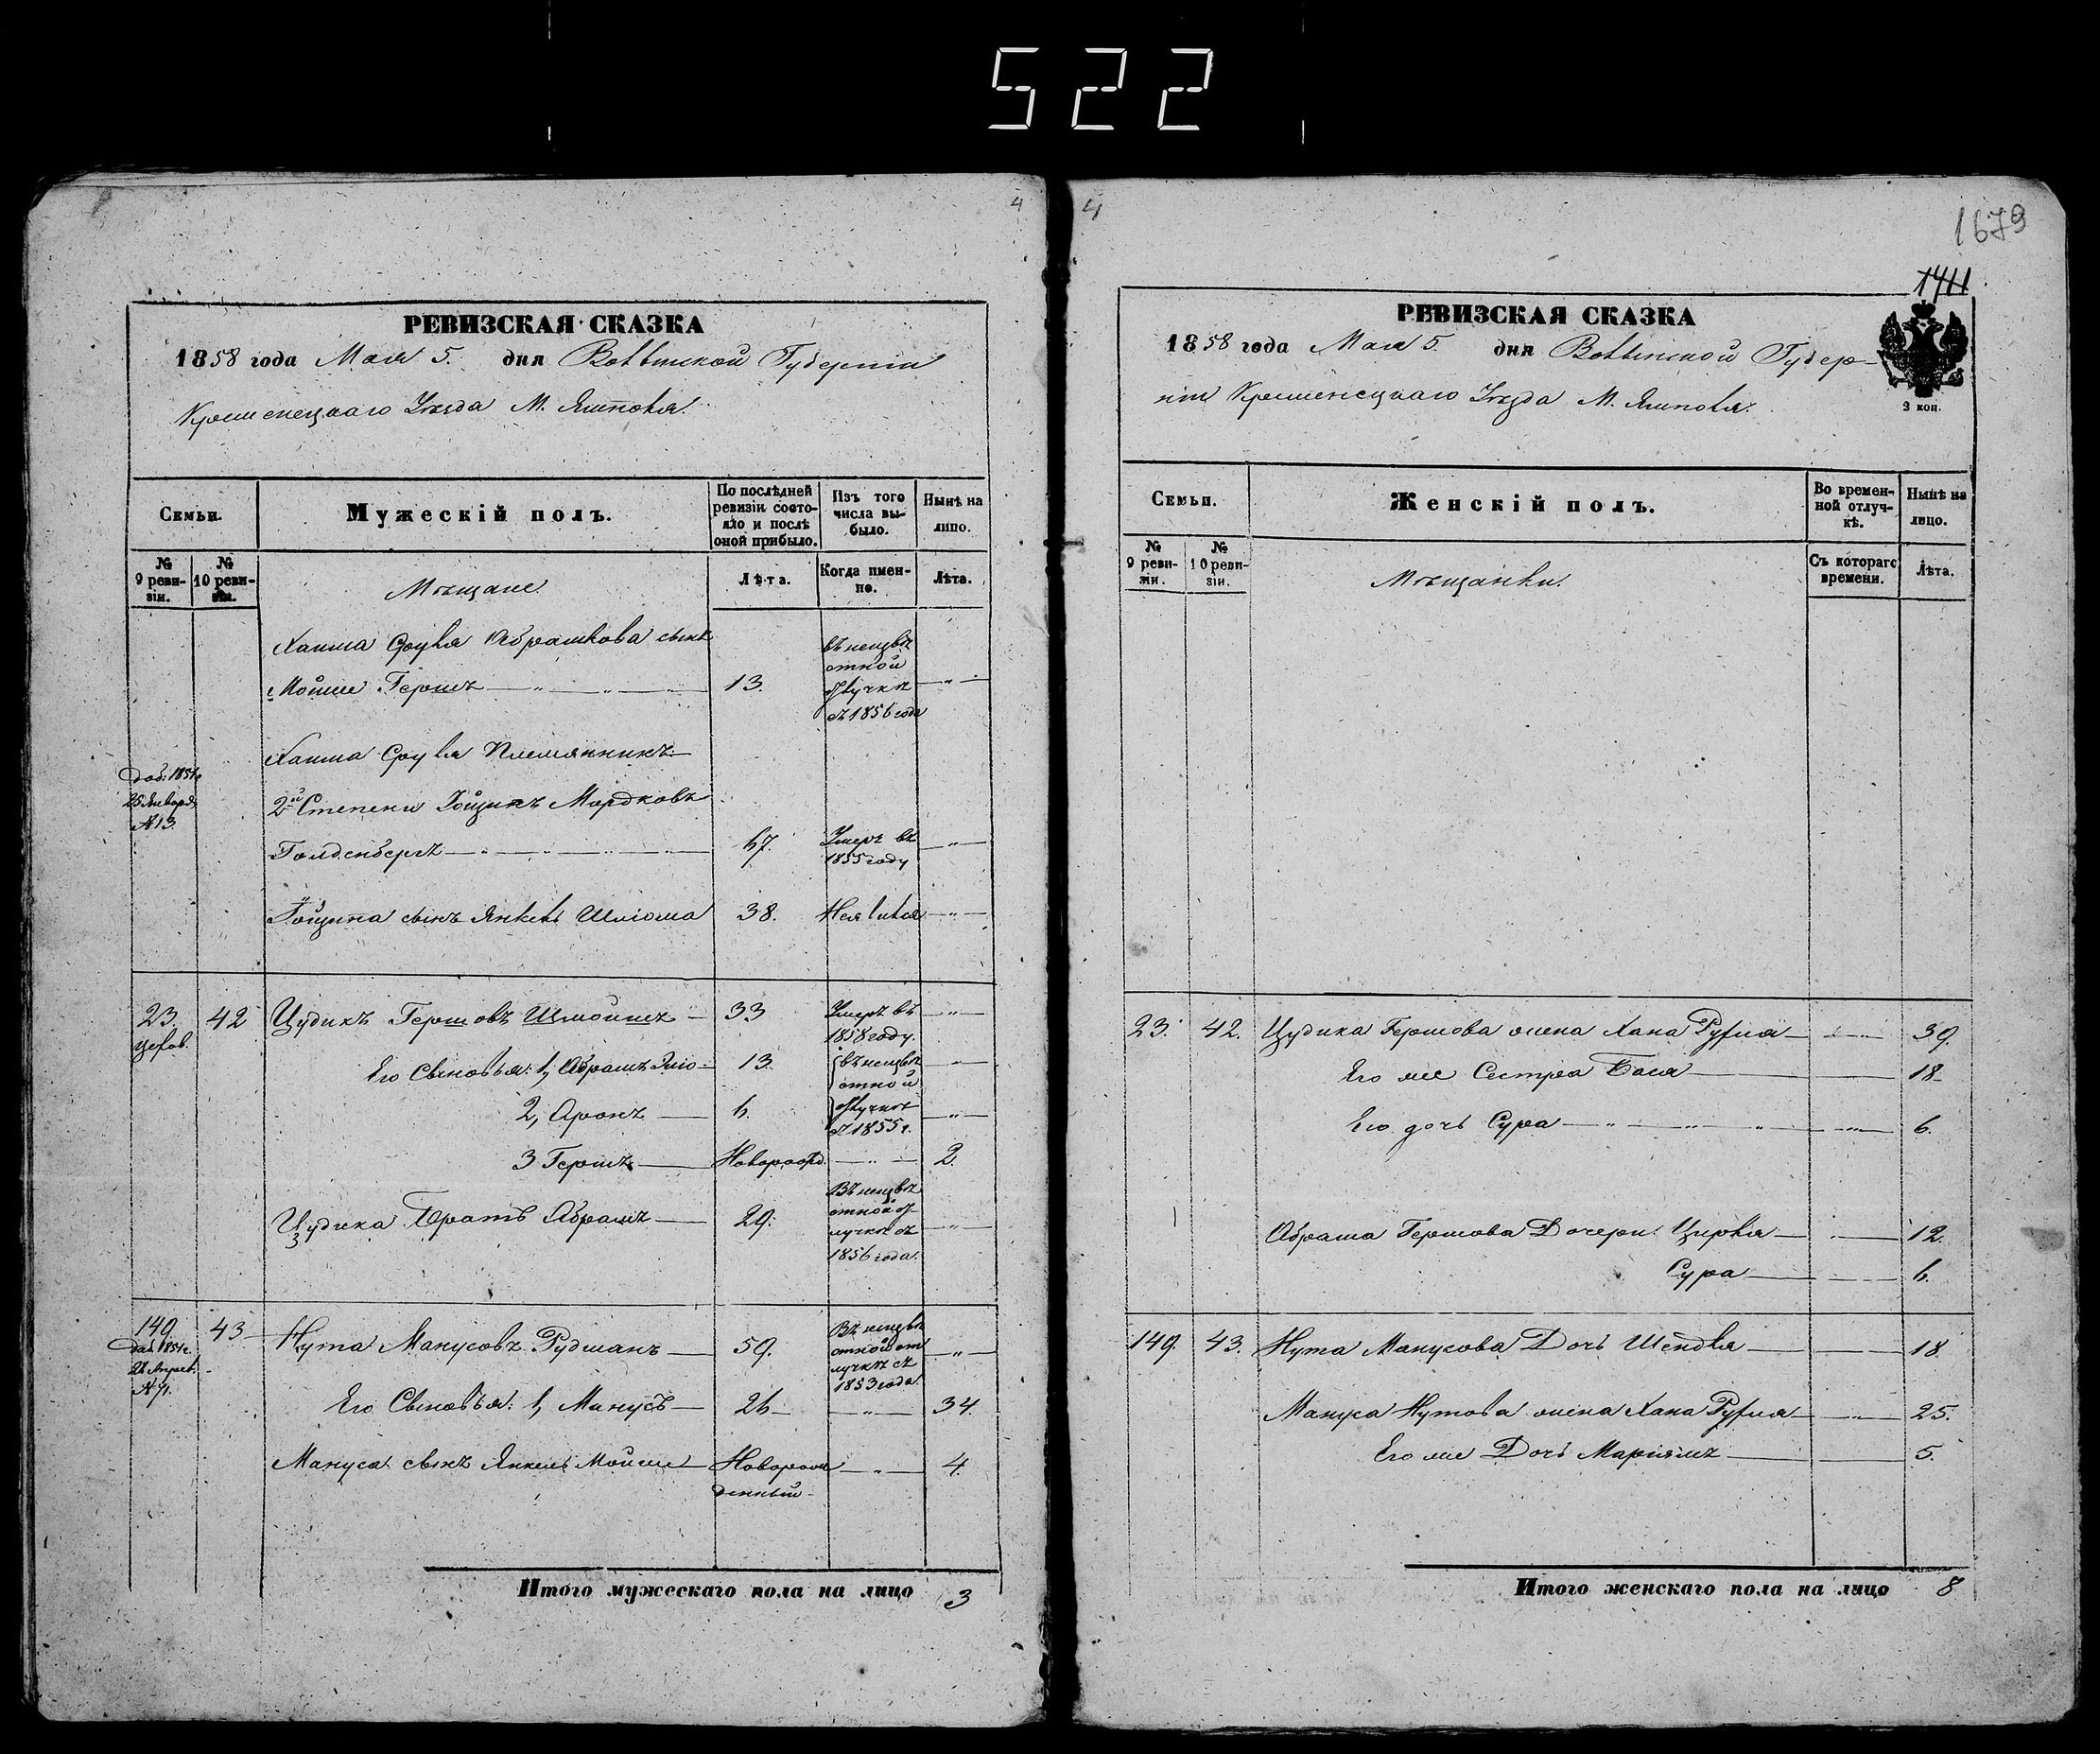 522
4
РЕВИЗСКАЯ СКАЗКА
1858 года Мая 5. дня Волынской Губерніи
Кременецкаго Уѣзда М. Ямполя.
Семьи.
Мужескій полъ.
По послѣдней ревизіи состояло и послѣ оной прибыло.
Изъ того числа выбыло.
Нынѣ на лицо.
№ 9 ревизіи.
№ 10 ревизіи.
Мѣщане.
Лѣта.
Когда именно.
Лѣта.
Хаима Сруля Абрамкова сынъ
Мойше Гершъ 13. въ неизвѣстной отлучкѣ съ 1856 года
Доб. 1851 г. 25 Января №13.
Хаима Сруля Племянникъ
2й Степени Іойцикъ Мордковъ
Голденбергъ 67. Умеръ въ 1855 году
Іойцика сынъ Янкель Шліома 38. Неявился
23. цехов. 42 Цудикъ Гершовъ Шмойшъ 33 Умеръ въ 1858 году.
Его Сыновья: 1, Абрамъ 13. въ неизвѣстной отлучкѣ съ 1855 г.
2, Аронъ 6.
3 Гершъ Новорожд. 2.
Цудика 3 Братъ Абрамъ 29. Въ неизвѣстной отлучкѣ съ 1856 года.
149 Доб. 1851 г. 43 Нута Манусовъ Рудманъ 59. Въ неизвѣстной отлучкѣ съ 1853 года.
Его Сыновья: 1, Манусъ 26 34.
Мануса сынъ Янкель Мойше Новорожденный 4.
Итого мужескаго пола на лицо 3
4
1679
1411
РЕВИЗСКАЯ СКАЗКА
1858 года Мая 5. дня Волынской Губерніи Кременецкаго Уѣзда М. Ямполя.
3 коп.
Семьи.
Женскій полъ.
Во временной отлучкѣ.
Нынѣ на лицо.
№ 9 ревизіи.
№ 10 ревизіи.
Мѣщанки.
Съ котораго времени.
Лѣта.
23. 42. Цудика Гершова жена Хана Рухля 39.
Его же Сестра Бася 18
Его дочь Сура 6.
Абрама Гершова Дочери: Цирля 12.
Сура 6.
149. 43. Нута Манусова Дочь Шендля 18
Мануса Нутова жена Хана Рухля 25.
Его же Дочь Маріямъ 5.
Итого женскаго пола на лицо 8